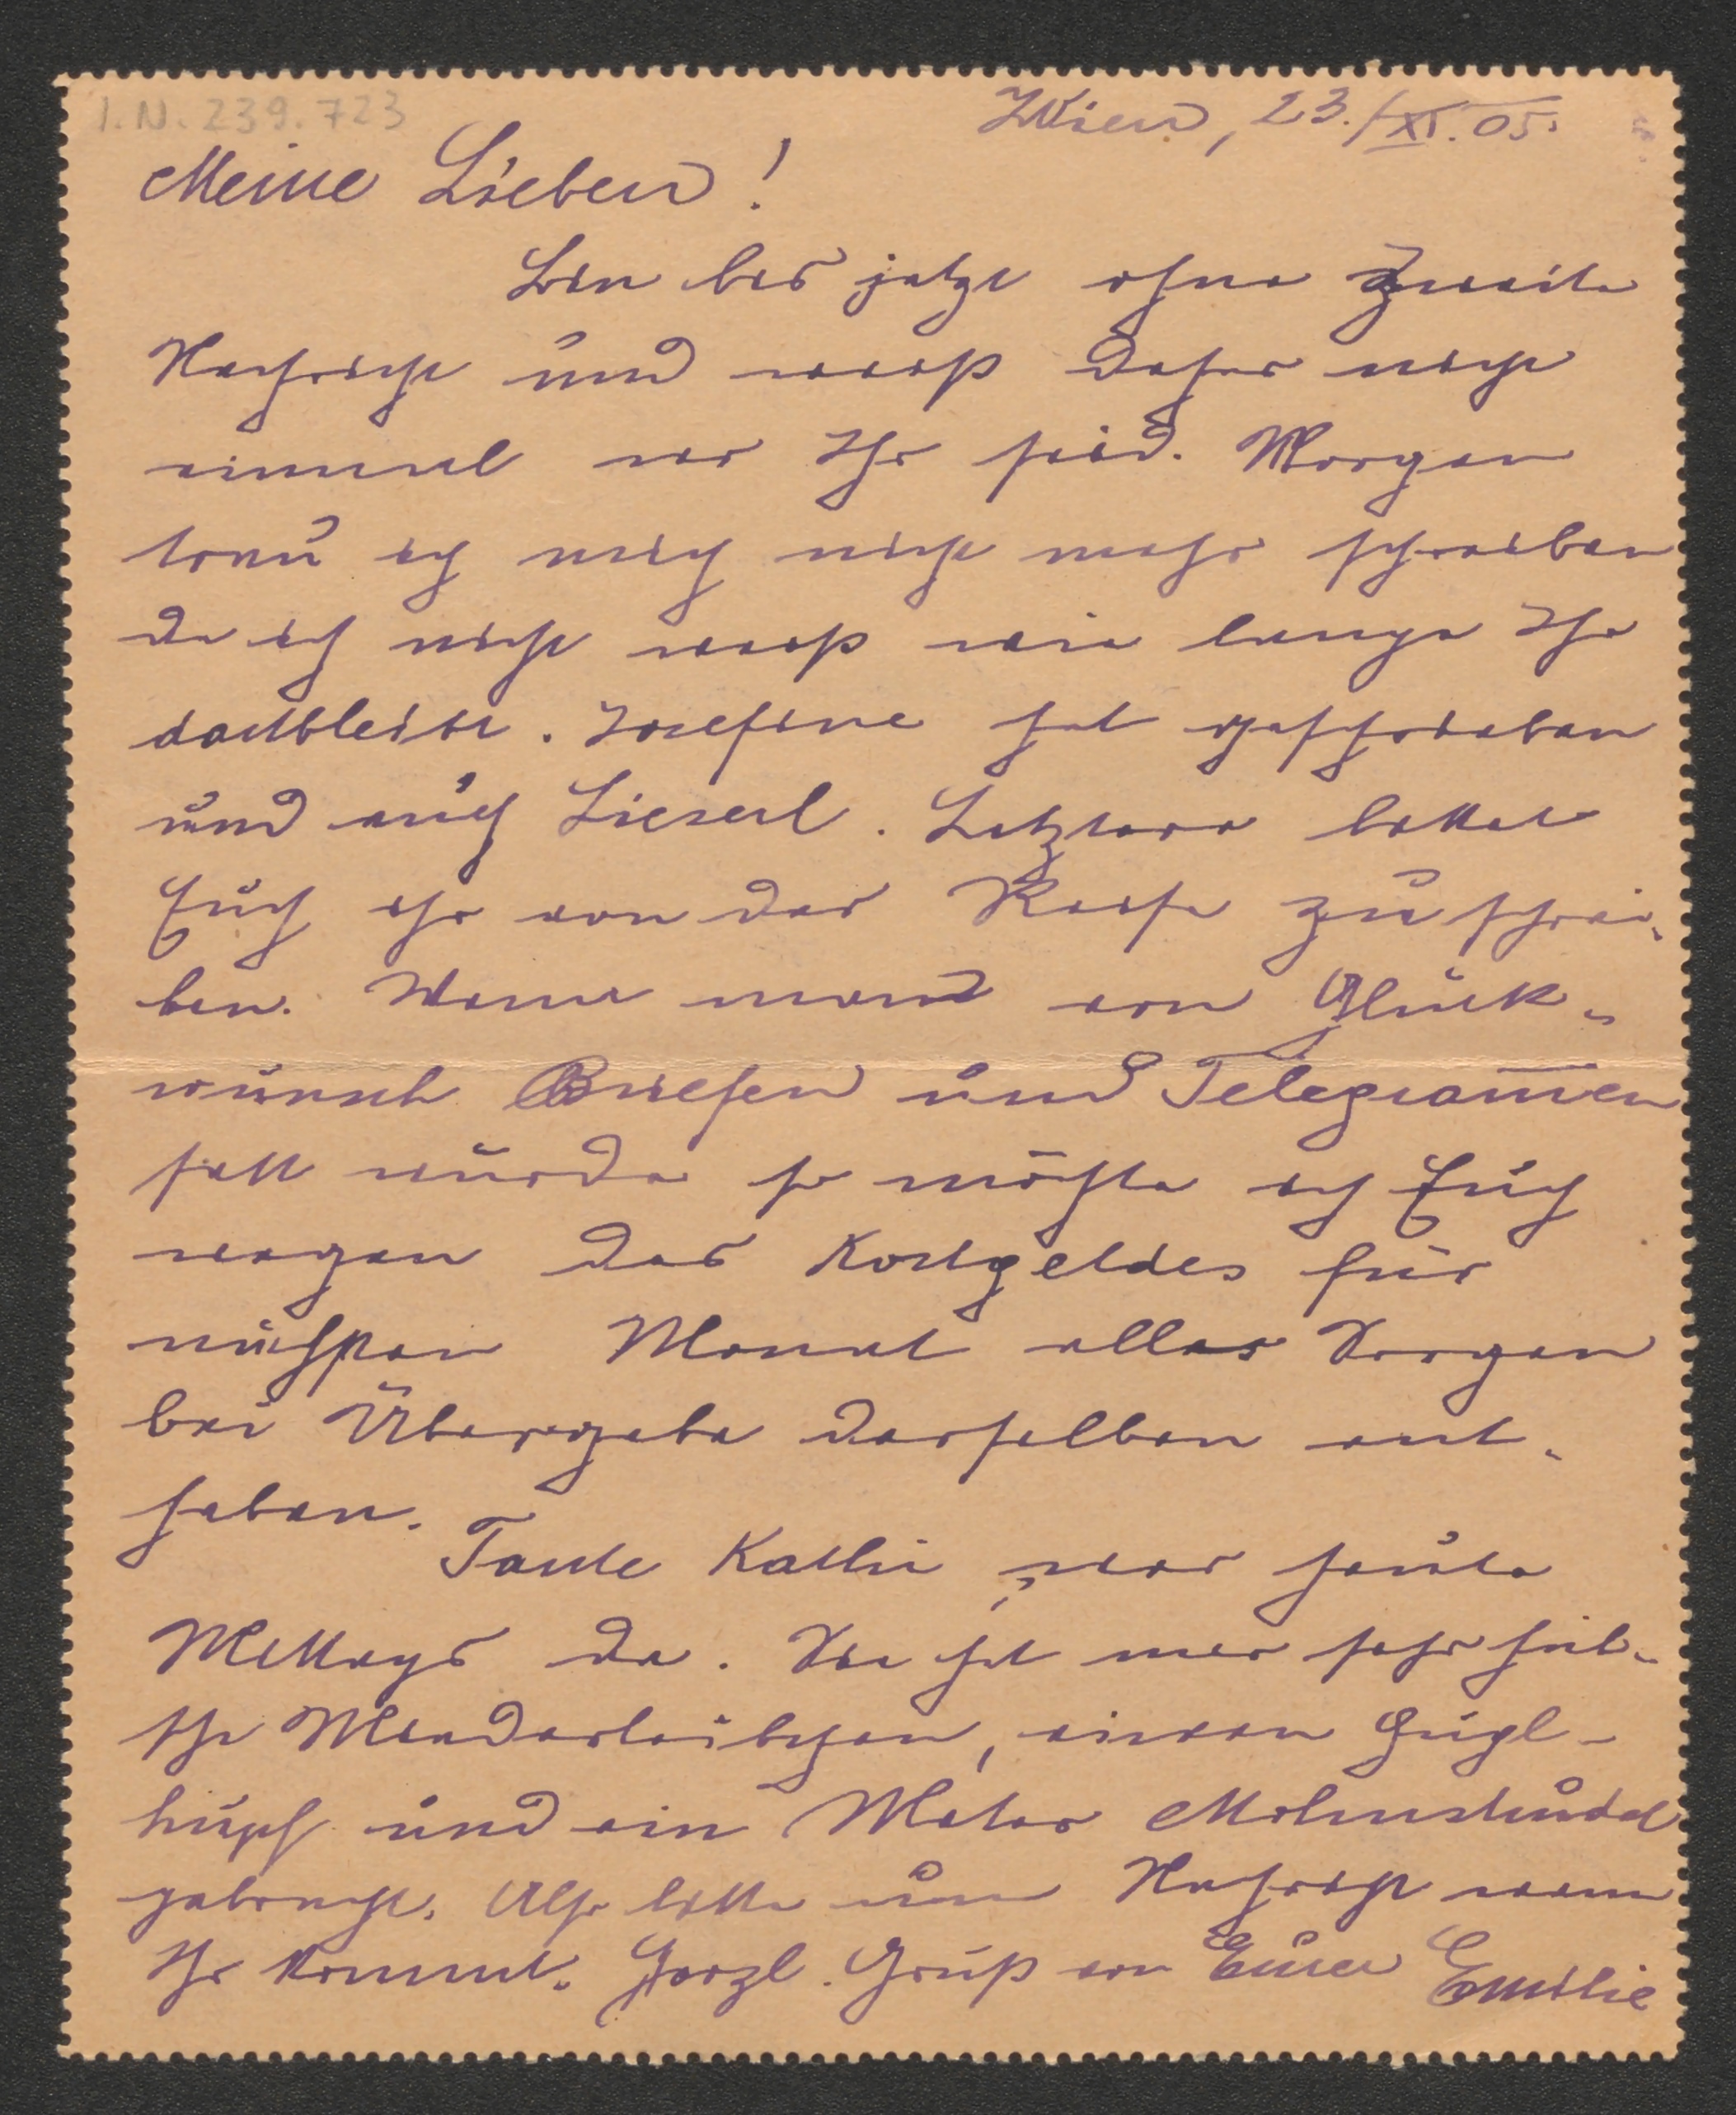 I.N. 239.723
Wien, 23./XI. 05.
Meine Lieben!
Bin bis jetzt ohne zweite
Nachricht und weiß daher nicht
einmal wo Ihr seid. Morgen
trau ich mich nicht mehr schreiben
da ich nicht weiß wie lange Ihr
dortbleibt. Josefine hat geschrieben
und auch Lieserl. Letztere bittet
Euch ihr von der Reise zu schrei-
ben. Wenn man von Glück-
wunsch Briefen und Telegram̅en
satt würde so möchte ich Euch
wegen des Kostgeldes für
nächsten Monat aller Sorgen
bei Übergabe desselben ent-
heben.
Tante Kathi war heute
Mittags da. Sie hat mir sehr hüb-
sche Miederleibchen, einen Gugl-
hupf und ein Meter Mohnstrudel
gebracht. Also bitte um Nachricht wann
Ihr kommt. Herzl. Gruß von Eurer Emilie